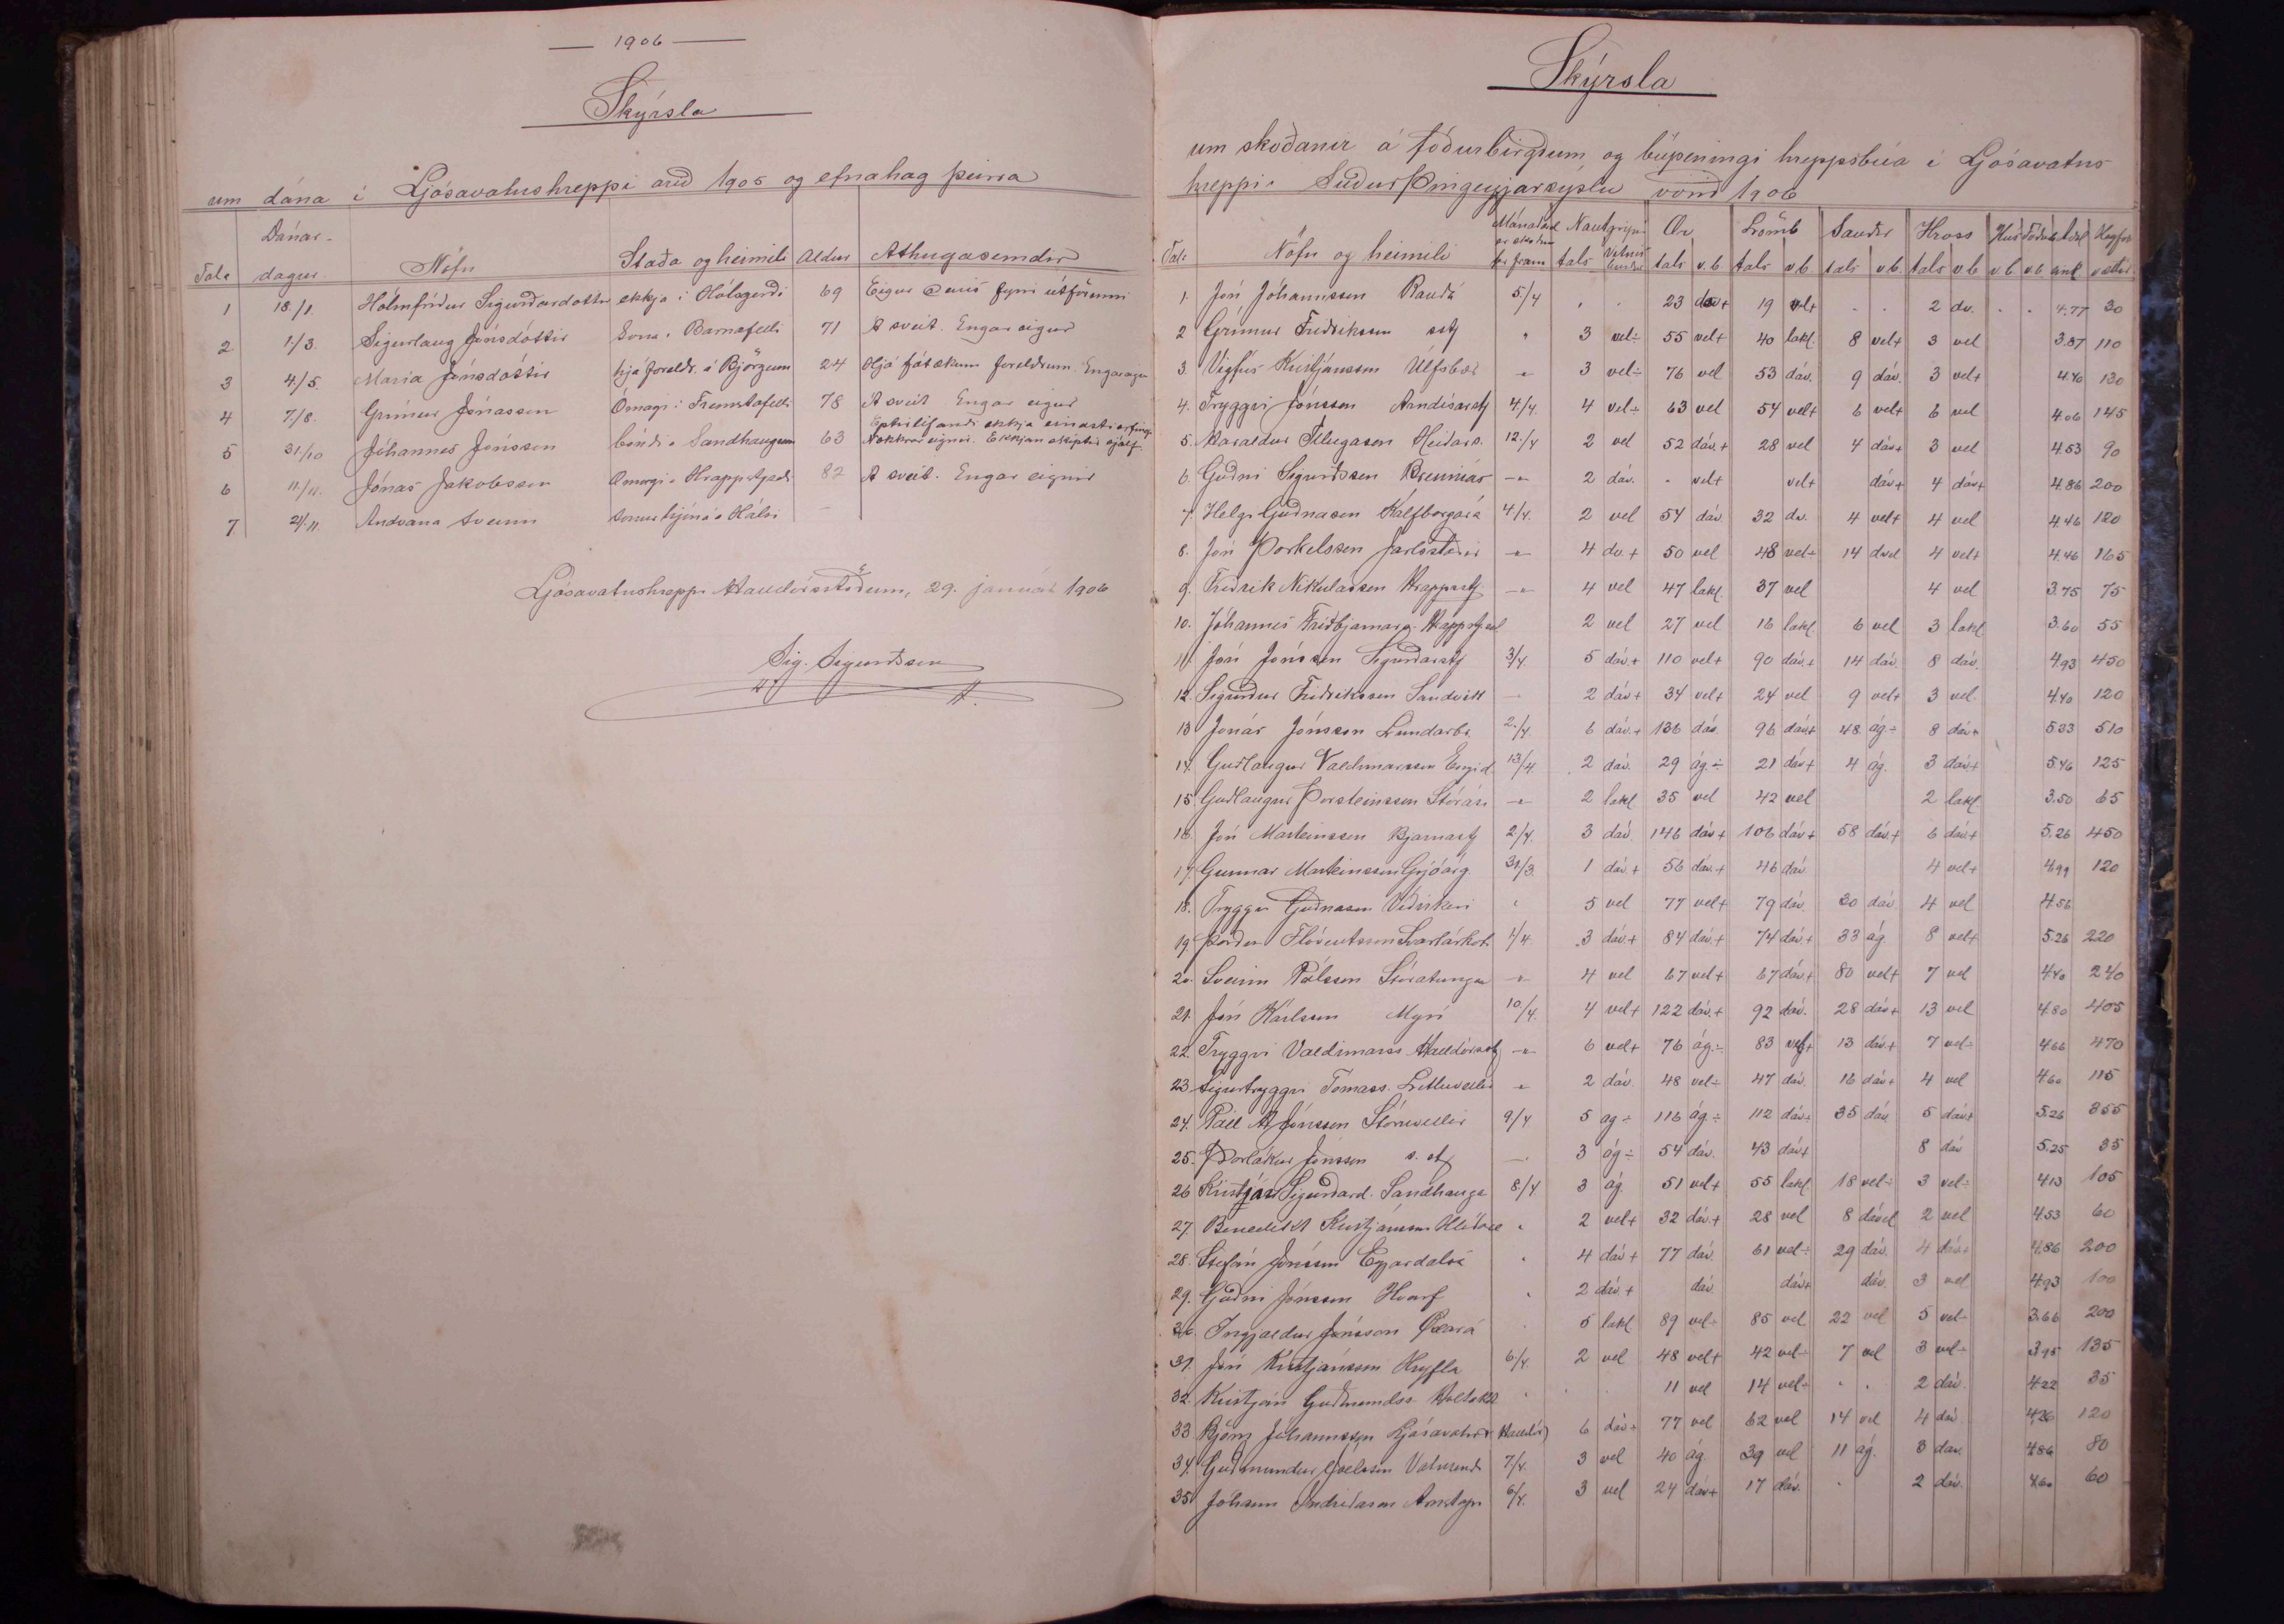 — 1906 —
Skýrsla
um dána í Ljósavatnshreppi árið 1905 og efnahag þeirra
Tala Dánar-dagur Nöfn Staða og heimili Aldur Athugasemdir
1 18/1 Hólmfríður Sigurðardóttir ekkja í Hólsgerði 69 Eigur fyrir útförinni
2 1/3 Sigurlaug Jónsdóttir Barnafelli 71 Á sveit. Engar eigur
3 4/5 María Jónsdóttir hjá foreldr. á Björgum 24 Hjá fátækum foreldrum. Engar eigur
4 7/8 Grímur Jónasson Ómagi í Fremstafelli 78 Á sveit Engar eigur
5 31/10 Jóhannes Jónsson bóndi á Sandhaugum 63 Eptirlifandi ekkja Nokkrar eignir. Ekkjan skiptir sjálf.
6 11/11 Jónas Jakobsson Ómagi á Hrappstöðum 82 Á sveit. Engar eignir
7. 21/11. Andvana sveinn sonur hjóna á Hálsi —
Ljósavatnshreppi Halldórsstöðum, 29. janúar 1906
Sig. Sigurðsson
Skýrsla
um skoðanir á fóðurbirgðum og búpeningi hreppsbúa í Ljósavatns
hreppi í Suður Þingeyjarsýslu vorið 1906
Tala Nöfn og heimili Mánaðard. er skoðun fór fram Nautgripir Ær Lömb Sauðir Hross Hús Fóður
tals tals v.b tals v.b tals v.b. tals v.b v.b v.b eink
1. Jón Jóhannsson Rauðá 5/4 " " 23 dáv+ 19 vel+ " " 2 dv. " " 4.77 30
2 Grímur Friðriksson sst " 3 vel÷ 55 vel+ 40 lakl. 8 vel+ 3 vel 3.87 110
3. Vigfús Kristjánsson Úlfsbæ " 3 vel÷ 76 vel 53 dáv. 9 dáv. 3 vel+ 4.40 130
4. Tryggvi Jónsson Arndísarst 4/4 4 vel÷ 63 vel 54 vel+ 6 vel+ 6 vel 4.06 145
5. Haraldur Illugason Heiðars. 12/4 2 vel 52 dáv.+ 28 vel 4 dáv+ 3 vel 4.53 90
6. Guðni Sigurðsson Brenniás -"- 2 dáv. " vel+ vel+ dáv+ 4 dáv+ 4.86 200
7. Helgi Guðnason Kálfborgará 4/4. 2 vel 54 dáv 32 dv. 4 vel+ 4 vel 4.46 120
8. Jón Þorkelsson Jarlsstöðir -"- 4 dv.+ 50 vel 48 vel÷ 14 dvel 4 vel+ 4.46 165
9. Friðrik Nikulásson Hrappst -"- 4 vel 47 lakl. 37 vel 4 vel 3.75 75
10. Jóhannes Friðbjarnars. Hrappst.sel 2 vel 27 vel 16 lakl 6 vel 3 lakl 3.60 55
11. Jón Jónsson Sigurðarst 3/4. 5 dáv+ 110 vel+ 90 dáv.+ 14 dáv 8 dáv. 4.93 450
12. Sigurður Friðriksson Sandvík -"- 2 dáv+ 34 vel+ 24 vel 9 vel+ 3 vel 4.40 120
13 Jónas Jónsson Lundarbr. 2/4. 6 dáv.+ 136 dáv. 96 dáv+ 48 ág÷ 8 dáv+ 5.33 510
14. Guðlaugur Valdimarsson Engid. 13/4 2 dáv. 29 ág.÷ 21 dáv+ 4 ág. 3 dáv+ 5.46 125
15. Guðlaugur Þorsteinsson Stórási -"- 2 lakl 35 vel 42 vel 2 lakl 3.50 65
16. Jón Marteinsson Bjarnast 2/4. 3 dáv 146 dáv+ 106 dáv+ 58 dáv.+ 6 dáv+ 5.26 450
17. Gunnar Marteinsson Grjótárg. 31/3. 1 dáv.+ 56 dáv.+ 46 dáv. 4 vel+ 4.99 120
18. Tryggvi Guðnason Víðirkeri " 5 vel 77 vel+ 79 dáv. 30 dáv 4 vel 4.56
19. Þórður Flóventsson Svartárkot. 1/4. 3 dáv+ 84 dáv.+ 74 dáv.+ 33 ág. 8 vel+ 5.26 220
20. Sveinn Pálsson Stóratunga -"- 4 vel 67 vel+ 67 dáv.+ 80 vel+ 7 vel 4.40 240
21. Jón Karlsson Mýri 10/4. 4 vel+ 122 dáv.+ 92 dáv. 28 dáv+ 13 vel 4.80 405
22. Tryggvi Valdimarss. Halldórsst -"- 6 vel+ 76 ág.÷ 83 vel+ 13 dáv.+ 7 vel÷ 4.66 470
23. Sigurtryggvi Tómass. Litluvellir " 2 dáv. 48 vel÷ 47 dáv. 16 dáv+ 4 vel 4.60 115
24. Páll H. Jónsson Stóruvellir 9/4 5 ág÷ 116 ág.÷ 112 dáv÷ 35 dáv. 5 dáv+ 5.26 355
25. Þorlákur Jónsson s. st. — 3 ág÷ 54 dáv. 43 dáv+ 8 dáv 5.25 35
26 Kristján Sigurðard. Sandhauga 8/4. 3 ág. 51 vel+ 55 lakl. 18 vel÷ 3 vel÷ 4.13 105
27. Benedikt Kristjánsson Hlíðare " 2 vel+ 32 dáv.+ 28 vel 8 dáv.el 2 vel 4.53 60
28. Stefán Jónsson Eyjardalsá " 4 dáv+ 77 dáv 61 vel÷ 29 dáv. 4 dáv+ 4.86 200
29. Guðni Jónsson Hvarf " 2 dáv.+ dáv. dáv+ dáv. 3 vel 4.93 100
30. Ingjaldur Jónsson Öxará " 5 lakl 89 vel÷ 85 vel 22 vel 5 vel÷ 3.66 200
31. Jón Kristjánsson Hryfla 6/4. 2 vel 48 vel+ 42 vel÷ 7 vel 3 vel÷ 3.95 135
32. Kristján Guðmundss. Holtakot " " " 11 vel 14 vel÷ " " 2 dáv. 4.22 35
33. Björn Jóhannsson Ljósavatni 6 dáv+ 77 vel 62 vel 14 vel 4 dáv 4.26 120
34. Guðmundur Vatnsenda 7/4. 3 vel 40 ág. 39 vel 11 ág. 3 dáv. 4.86 80
35. Jóhann Indriðason Arnstapi 6/4. 3 vel 24 dáv+ 17 dáv. " 2 dáv. 4.60 60